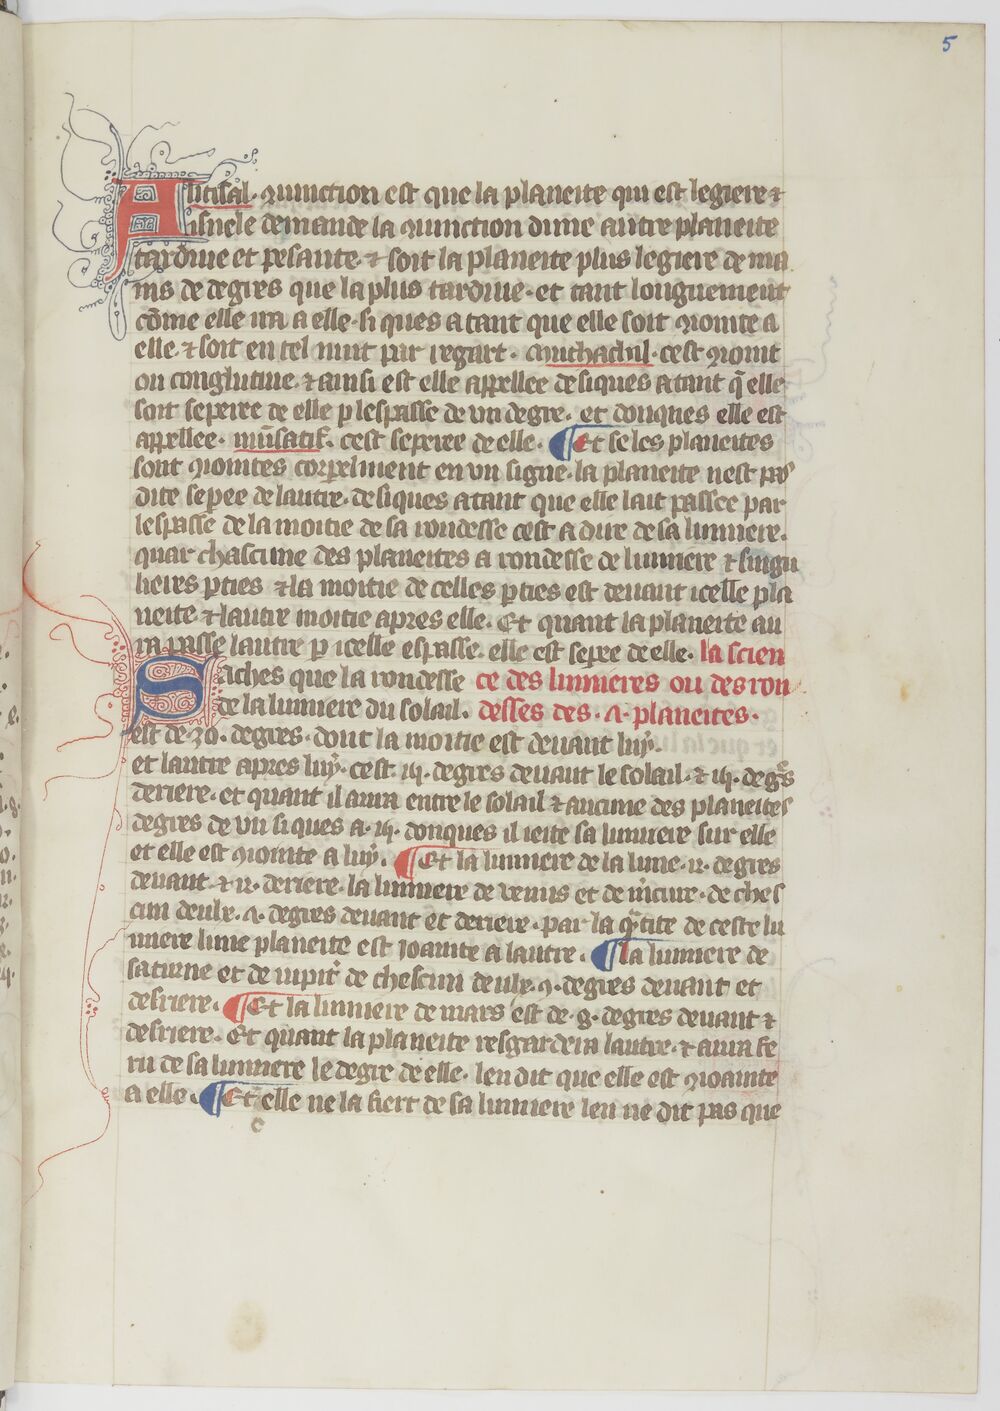 5
Alitisal. Quiunction est que la planeite qui est legiere ⁊
isnele demande la quiunction dune autre planeite
tardiue et pesante. ⁊ soit la planeite plus legiere de ma
ins de degres que la plus tardiue. et tant longuement
cōme elle ira a elle. si ques a tant que elle soit ioinite a
elle. ⁊ soit en tel nuit par regart. cest ioint
ou conglutine. ⁊ ainsi est elle appellee desiques a tant q̄ elle
soit seperee de elle p lespasse de vn degre. et donques elle est
appellee. mūsatif. cest seperee de elle. ¶ Et se les planeites
sont ioinites corpelment en vn signe. la planeite nest pas
dite sepee de lautre. desiques a tant que elle lait passee par
lespasse de la moitie de sa rondesse cest a dire de sa lumiere.
quar chascune des planeites a rondesse de lumiere ⁊ singu
lieres pties ⁊ la moitie de celles pties est deuant icelle pla
neite ⁊ lautre moitie apres elle. Et quant la planeite au
ra passe lautre p icelle espasse. elle est sepee de elle. la scien
Saches que la rondesse ce des lumieres ou des ron
de la lumiere du solail. desses des. planeites.
est de 30. degres. dont la moitie est deuant luy.
et lautre apres luy. cest. degres deuant le solail. ⁊ deg̃s
deriere. et quant il aura entre le solail ⁊ aucune des planeites
degres de vn siques a. donques il iette sa lumiere sur elle
et elle est ioinite a luy. ¶ Et la lumiere de la lune. 12. degres
deuant. ⁊ 12. deriere. la lumiere de venus et de m̄cure. de ches
cun deulx. degres deuant et deriere. par la q̃tite de ceste lu
miere lune planeite est ioainte a lautre. ¶ la lumiere de
saturne et de iupit̃ de chescun deulx. 9. degres deuant et
desriere. ¶ Et la lumiere de mars est de. 8. degres deuant ⁊
desriere. Et quant la planeite resgardera lautre. ⁊ aura fe
ru de sa lumiere le degre de elle. len dit que elle est ioainte
a elle. ¶ Et elle ne la fiert de sa lumiere len ne dit pas que